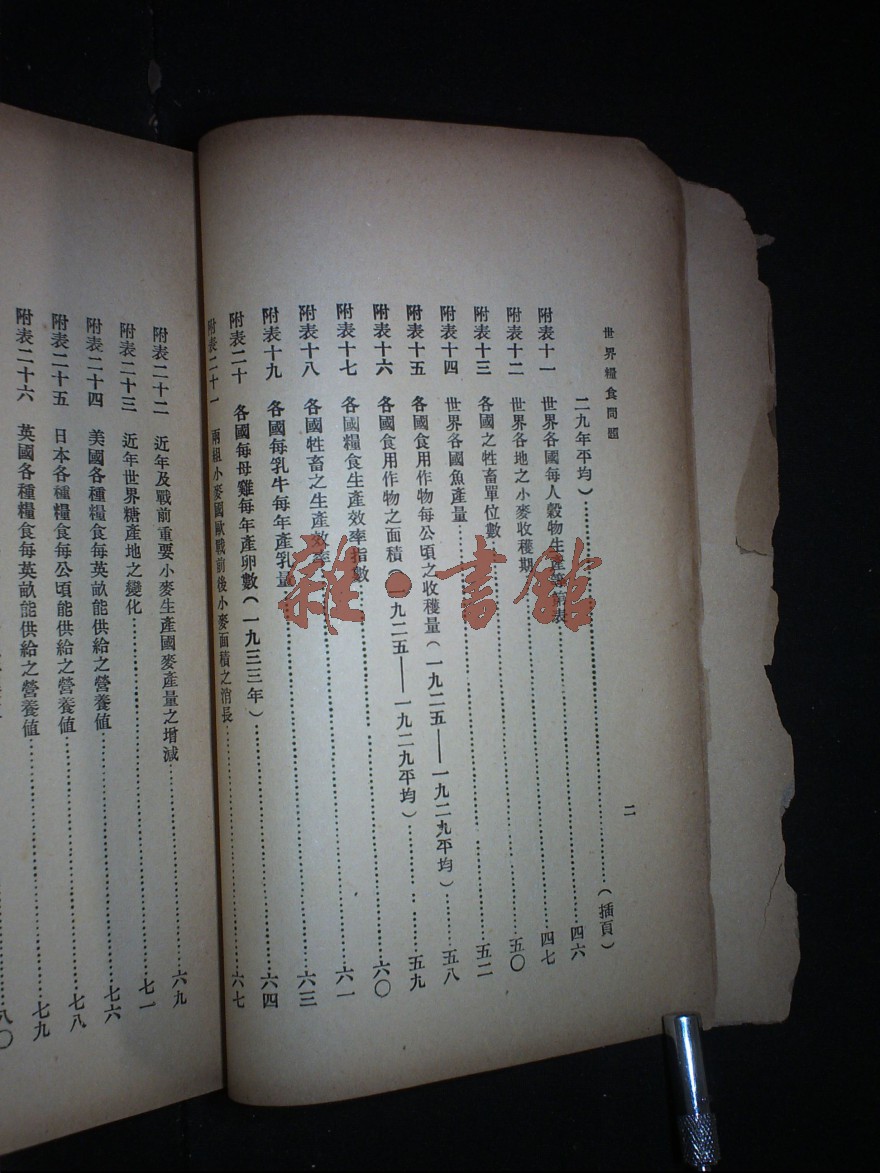 世界糧食問題 二
二九年平均)……(插頁)
附表十一 世界各國每人穀物生產等第表……四六
附表十二 世界各地之小麥收穫期……四七
附表十三 各國之牲畜單位數……五〇
附表十四 世界各國魚產量……五二
附表十五 各國食用作物每公頃之收穫量(一九二五——一九二九平均)……五八
附表十六 各國食用作物之面積(一九二五——一九二九平均)……五九
附表十七 各國糧食生產效率指數……六〇
附表十八 各國牲畜之生產效率……六一
附表十九 各國每乳牛每年產乳量……六三
附表二十 各國每母雞每年產卵數(一九三三年)……六四
附表二十一 兩組小麥國歐戰前後小麥面積之消長……六七
附表二十二 近年及戰前重要小麥生產國麥產量之增減……六九
附表二十三 近年世界糖產地之變化……七一
附表二十四 美國各種糧食每英畝能供給之營養值……七六
附表二十五 日本各種糧食每公頃能供給之營養值……七八
附表二十六 英國各種糧食每英畝能供給之營養值……七九
八〇
雜·書館